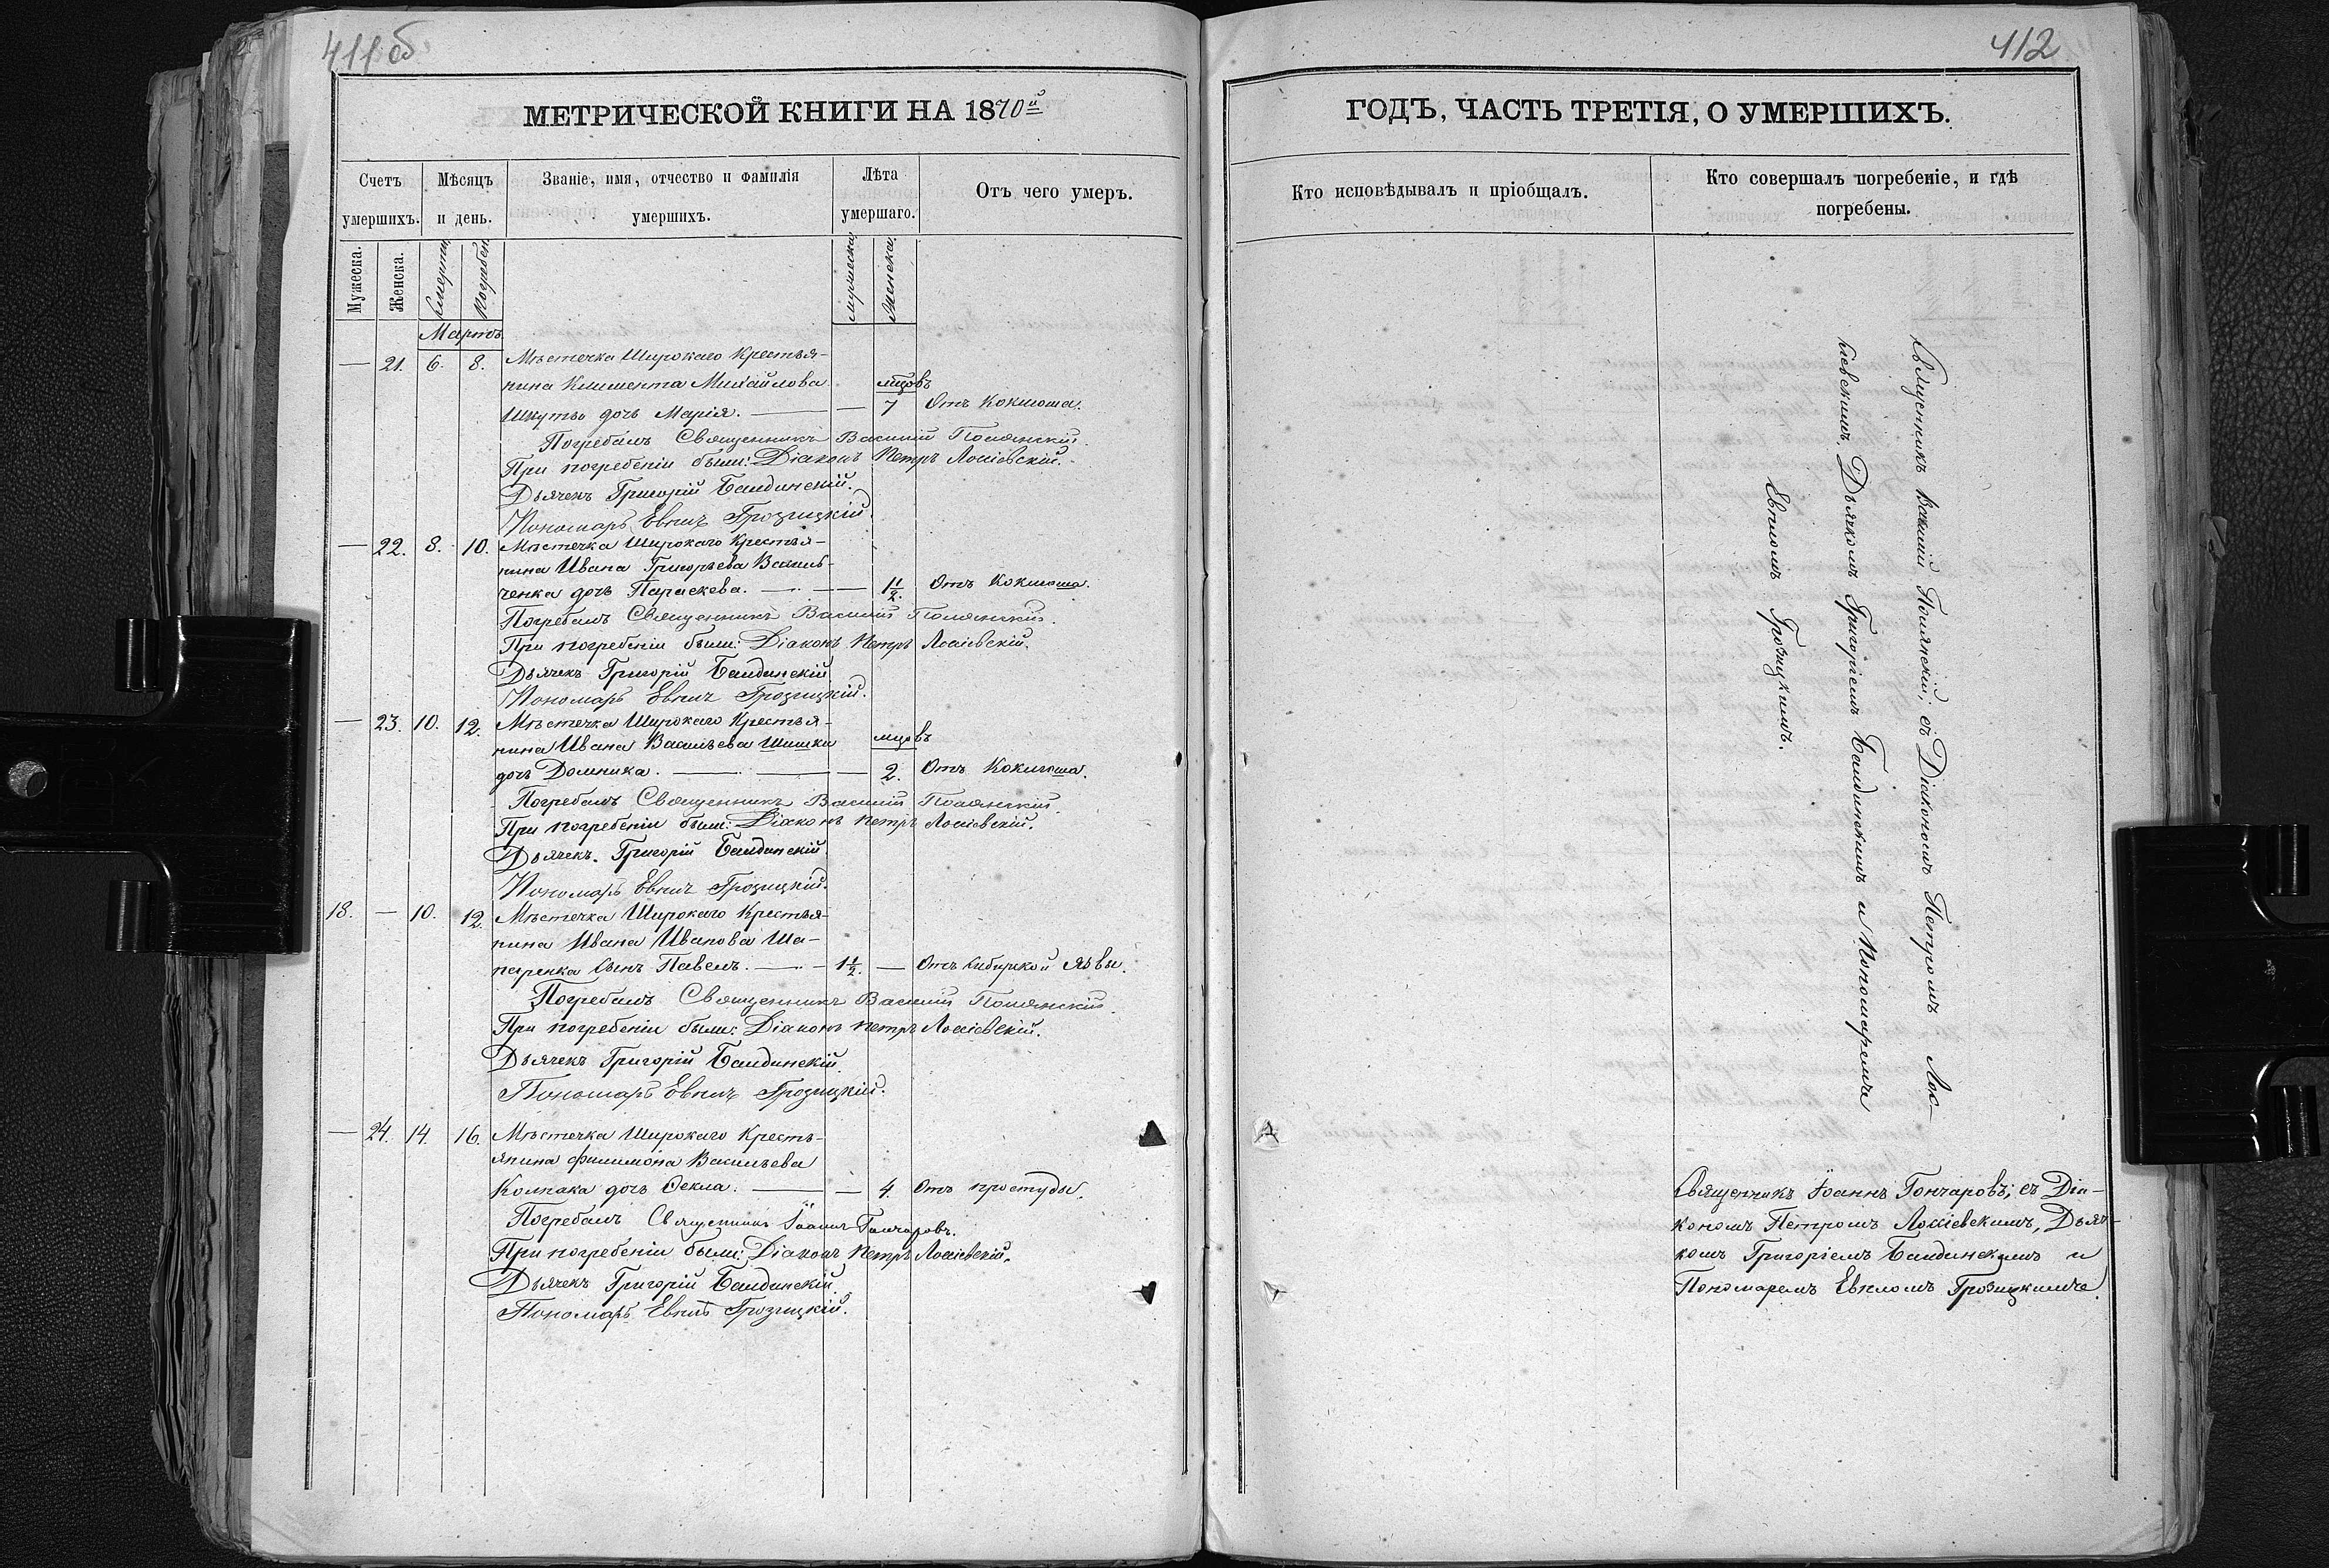 411об
МЕТРИЧЕСКОЙ КНИГИ НА 1870й
Счетъ умершихъ.
Мѣсяцъ и день.
Званіе, имя, отчество и фамилія умершихъ.
Лѣта умершаго.
Отъ чего умеръ.
Мужеска. Женска. Смерти Погребен. мужеска Женска
Мартъ.
— 21. 6. 8. Мѣстечка Широкаго Крестья-
нина Климента Михайлова мцовъ
дочь Марія. — — 7 Отъ Коклюша.
Погребалъ Священникъ Василій Полянскій.
При погребеніи были: Діаконъ Петръ Лосіевскій.
Дьячекъ Григорій Балдинскій.
Пономарь Евпилъ Грозицкій.
— 22. 8. 10. Мѣстечка Широкаго Крестья-
нина Ивана Григорьева Василь-
ченка дочь Параскева. — — 1½. Отъ Коклюша.
Погребалъ Священникъ Василій Полянскій.
При погребеніи были: Діаконъ Петръ Лосіевскій.
Дьячекъ Григорій Балдинскій
Пономарь Евпилъ Грозицкій.
— 23. 10. 12. Мѣстечка Широкаго Крестья-
нина Ивана Васильева Шишки мцовъ
дочь Домника. — — — 2. Отъ Коклюша.
Погребалъ Священникъ Василій Полянскій.
При погребеніи были: Діаконъ Петръ Лосіевскій.
Дьячекъ Григорій Балдинскій
Пономарь Евпилъ Грозицкій.
18. — 10. 12. Мѣстечка Широкаго Крестья-
нина Ивана Иванова Ша-
паренка сынъ Павелъ. — 1½. — Отъ Сибирской язвы.
Погребалъ Священникъ Василій Полянскій.
При погребеніи были: Діаконъ Петръ Лосіевскій.
Дьячекъ Григорій Балдинскій.
Пономарь Евпилъ Грозицкій.
— 24. 14. 16. Мѣстечка Широкаго Кресть-
янина Филимона Васильева
Колпака дочь Ѳекла. — — 4. Отъ простуды.
Погребалъ Священникъ Іоаннъ Гончаровъ.
При погребеніи были: Діаконъ Петръ Лосіевскій.
Дьячекъ Григорій Балдинскій.
Пономарь Евпилъ Грозицкій.
412
ГОДЪ, ЧАСТЬ ТРЕТІЯ, О УМЕРШИХЪ.
Кто исповѣдывалъ и пріобщалъ.
Кто совершалъ погребеніе, и гдѣ погребены.
Священникъ Василій Полянскій; съ Діакономъ Петромъ Лос-
сіевскимъ, Дьячкомъ Григоріемъ Балдинскимъ и Пономаремъ
Евпломъ Грозицкимъ.
Священникъ Іоаннъ Гончаровъ; съ Діа-
кономъ Петромъ Лосіевскимъ, Дьяч-
комъ Григоріемъ Балдинскимъ и
Пономаремъ Евпломъ Грозицкимъ.